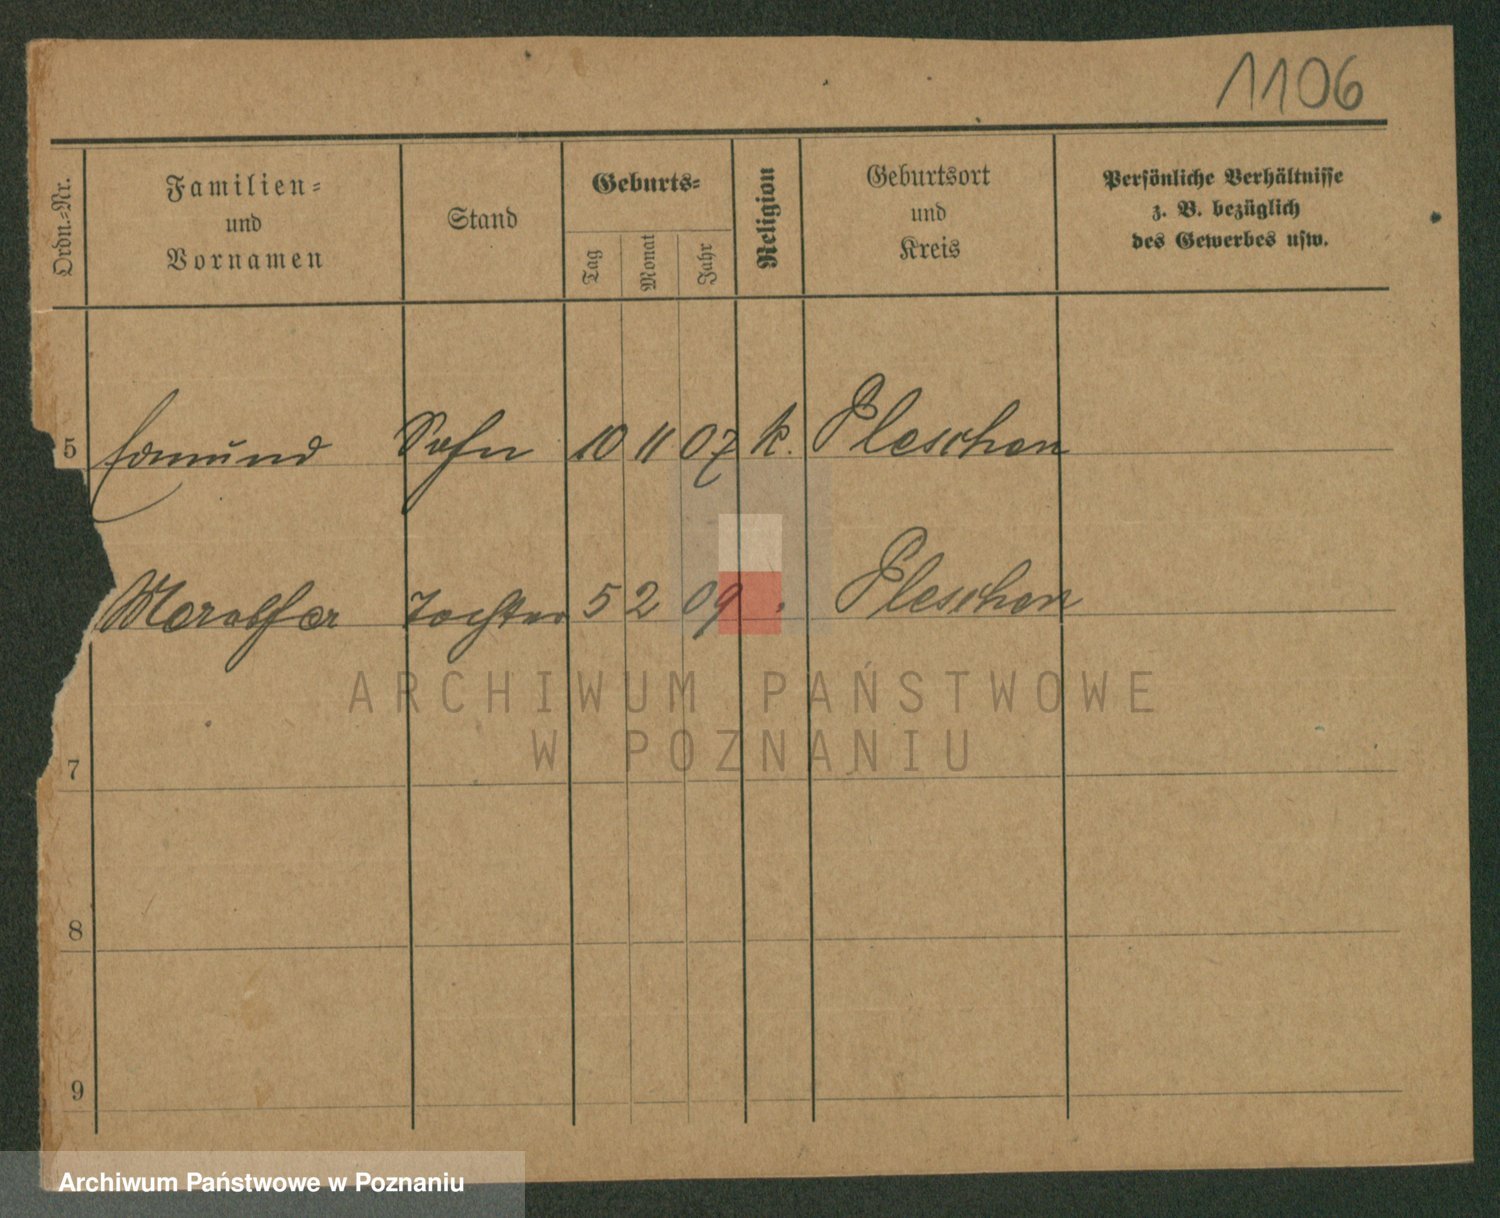 1106
Ordn.-Nr.
Familien-
und
Vornamen
Stand
Geburts-
Tag
Monat
Jahr
Religion
Geburtsort
und
Kreis
Persönliche Verhältnisse
z. B. bezüglich
des Gewerbes usw.
5 Edmund Sohn 10 11 07 k. Pleschen
Tochter 5 2 09 Pleschen
ARCHIWUM PAŃSTWOWE
W POZNANIU
7
8
9
Archiwum Państwowe w Poznaniu